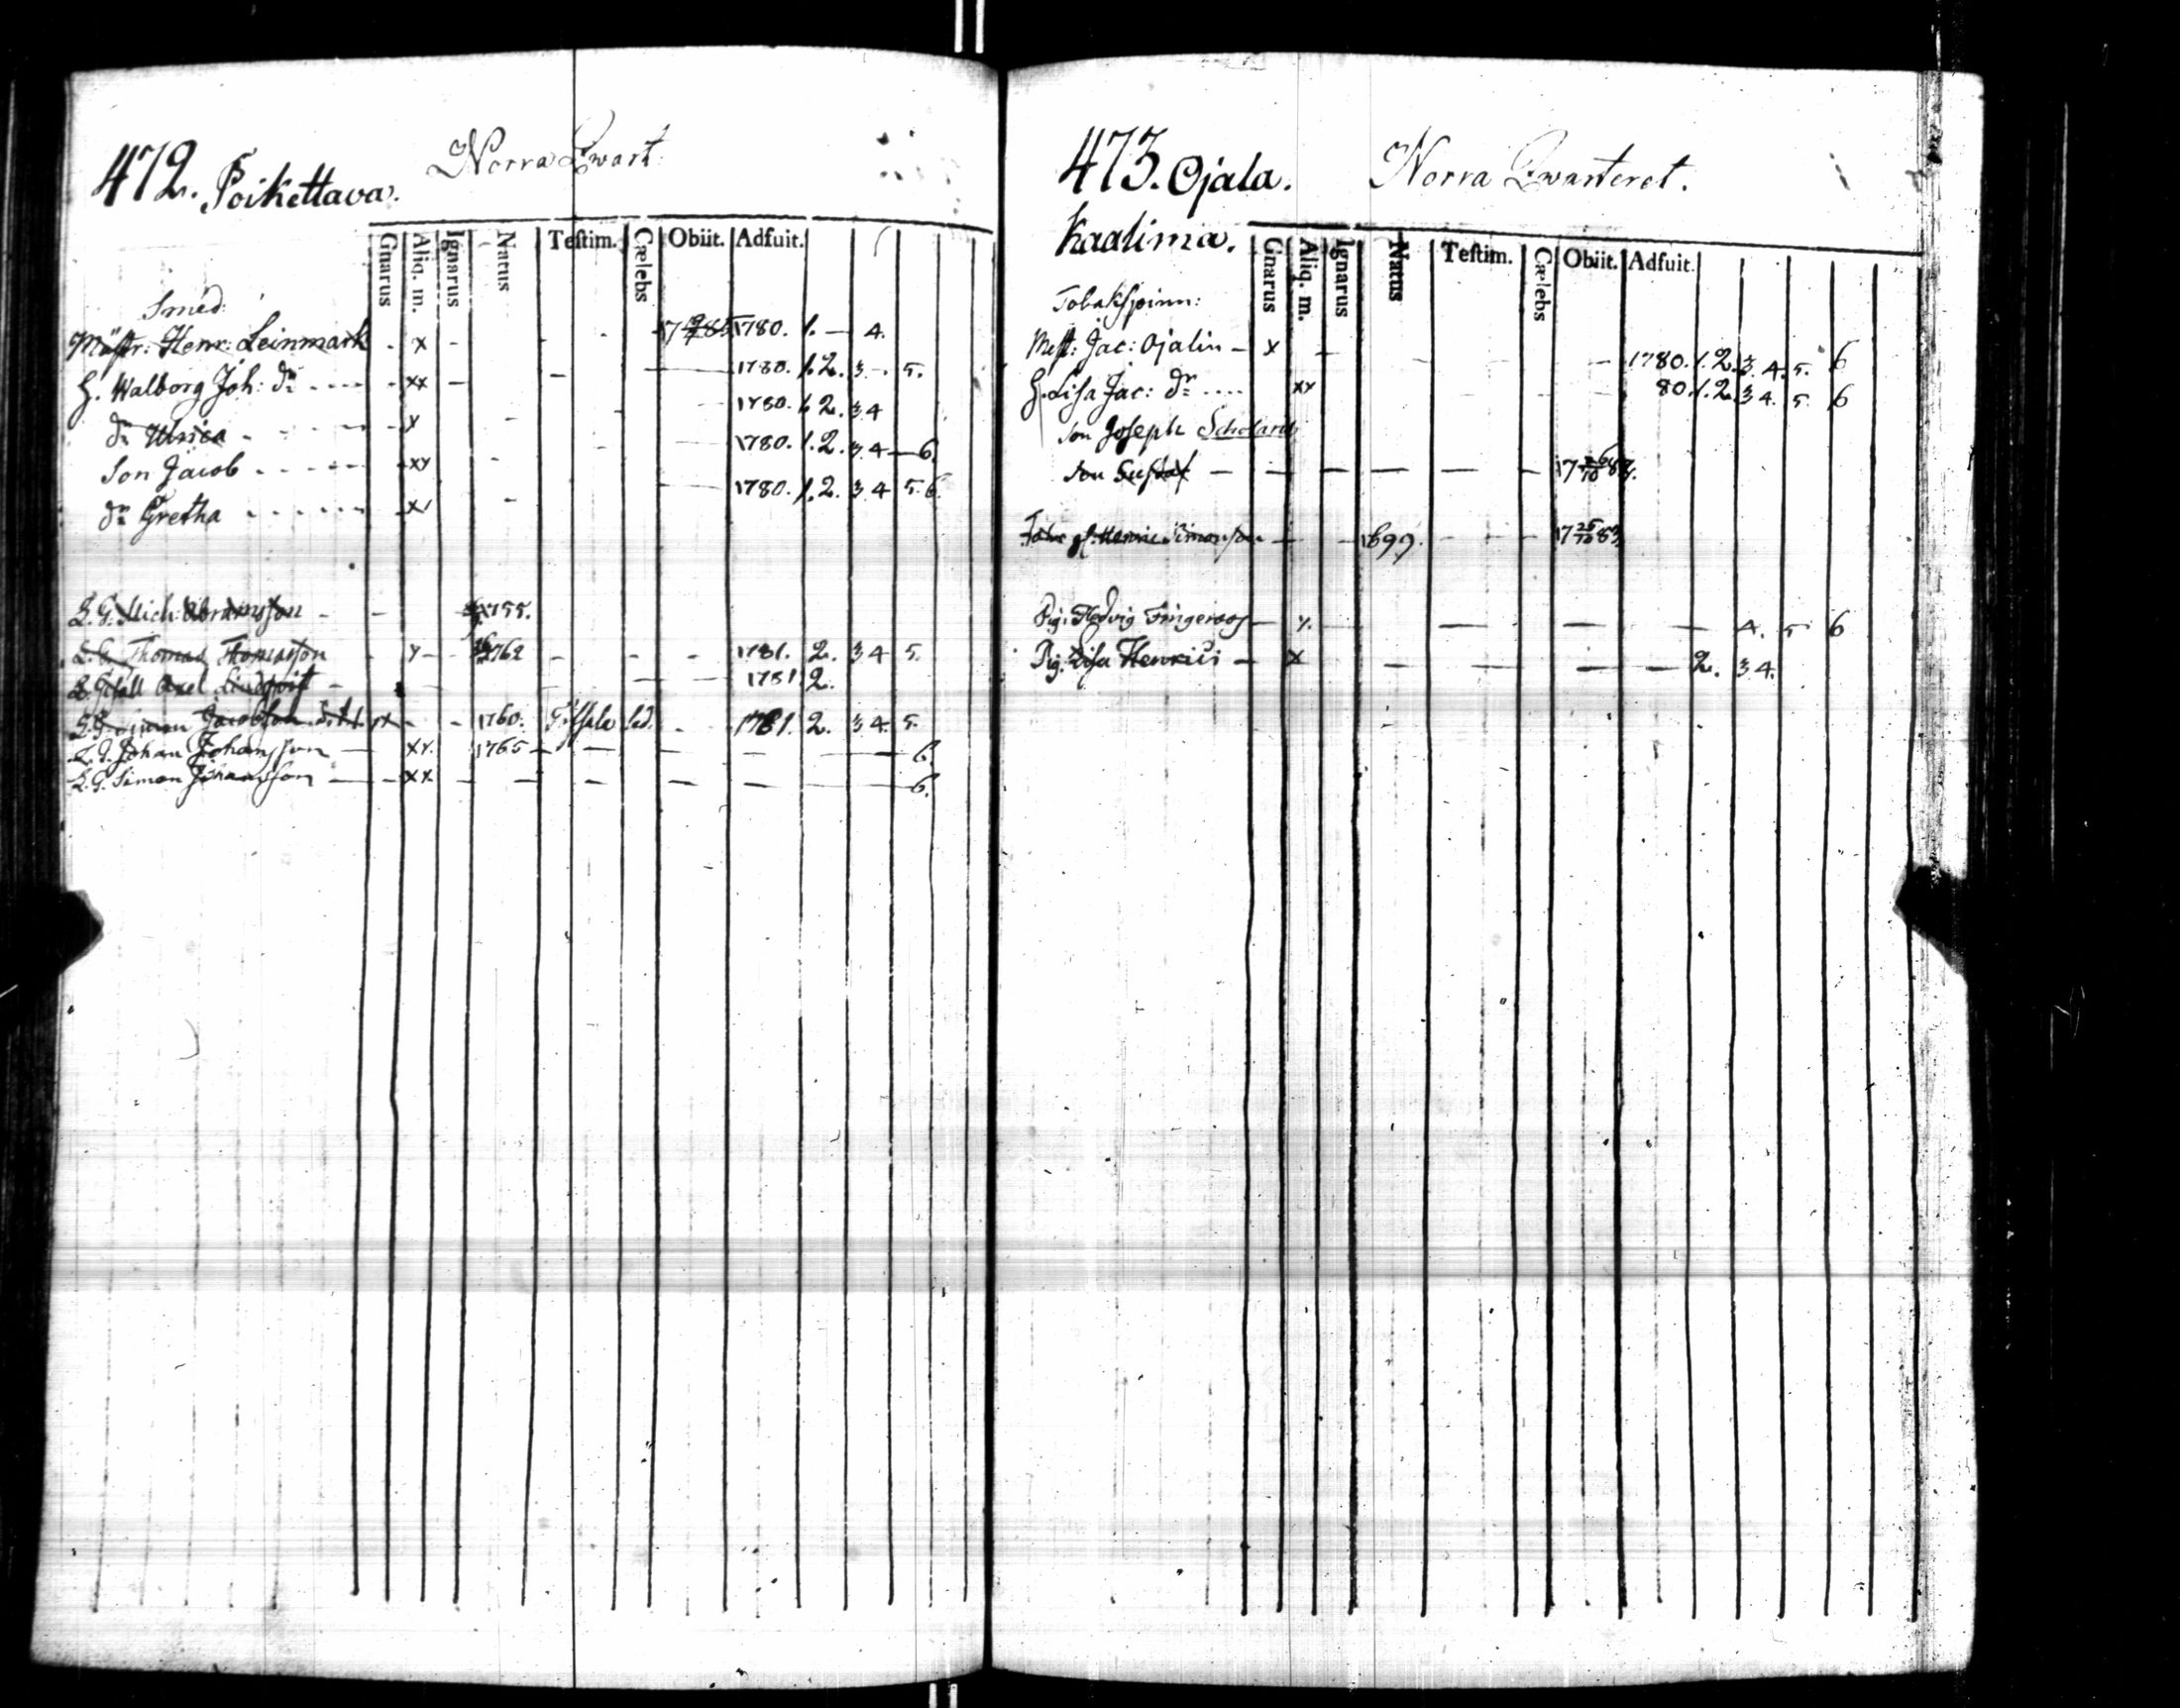 472. Poikettava. Norra Qwart:
Gnarus Aliq. m. Ignarus Natus Teſtim. Cælebs Obiit. Adfuit.
Smed:
Mäſtr: Henr: Leinmark - x - - - 1780. 1. — 4.
H. Walborg Joh: dr .... - xx — - 1780. 1. 2. 3. - . 5.
dr Ulrica - - - - x - 1780. 1. 2. 3. 4
Son Jacob - - - - xx - 1780. 1. 2. 3. 4 — 6.
dr Gretha - - - - - xx - 1780. 1. 2. 3. 4 5. 6.
L. G. Mich: Abramsson - - 1755.
L. G. Thomas Thomasson - x - 1762 - - - 1781. 2. 3 4 5.
L. Gſäll Axel Lindqvist - 1781 2.
L. G. Simon Jacobson - - 1760. 1781. 2. 3 4. 5.
L. G. Johan Johansson — xx. 1765 — — — — — 6.
L. G. Simon Johansson — - xx - — — — — — 6.
473. Ojala. Norra Qwarteret.
Kaalima.
Gnarus Aliq. m. Ignarus Natus Teſtim. Cælebs Obiit. Adfuit.
Tobakſpinn:
Meſt: Jac: Ojalin - x — 1780. 1. 2. 3. 4. 5. 6
H. Liſa Jac: dr .... xx 80. 1. 2. 3 4. 5. 6
Son Joſeph Scholaris
Son Guſtaf — — — — — —
Henric Simonſon — — 1699. - - - 17 25/12 83.
Pig. Hedvig Fringeroos — x. — — — — 4. 5 6
Pig. Liſa Henrici — x — — — — 2. 3 4.